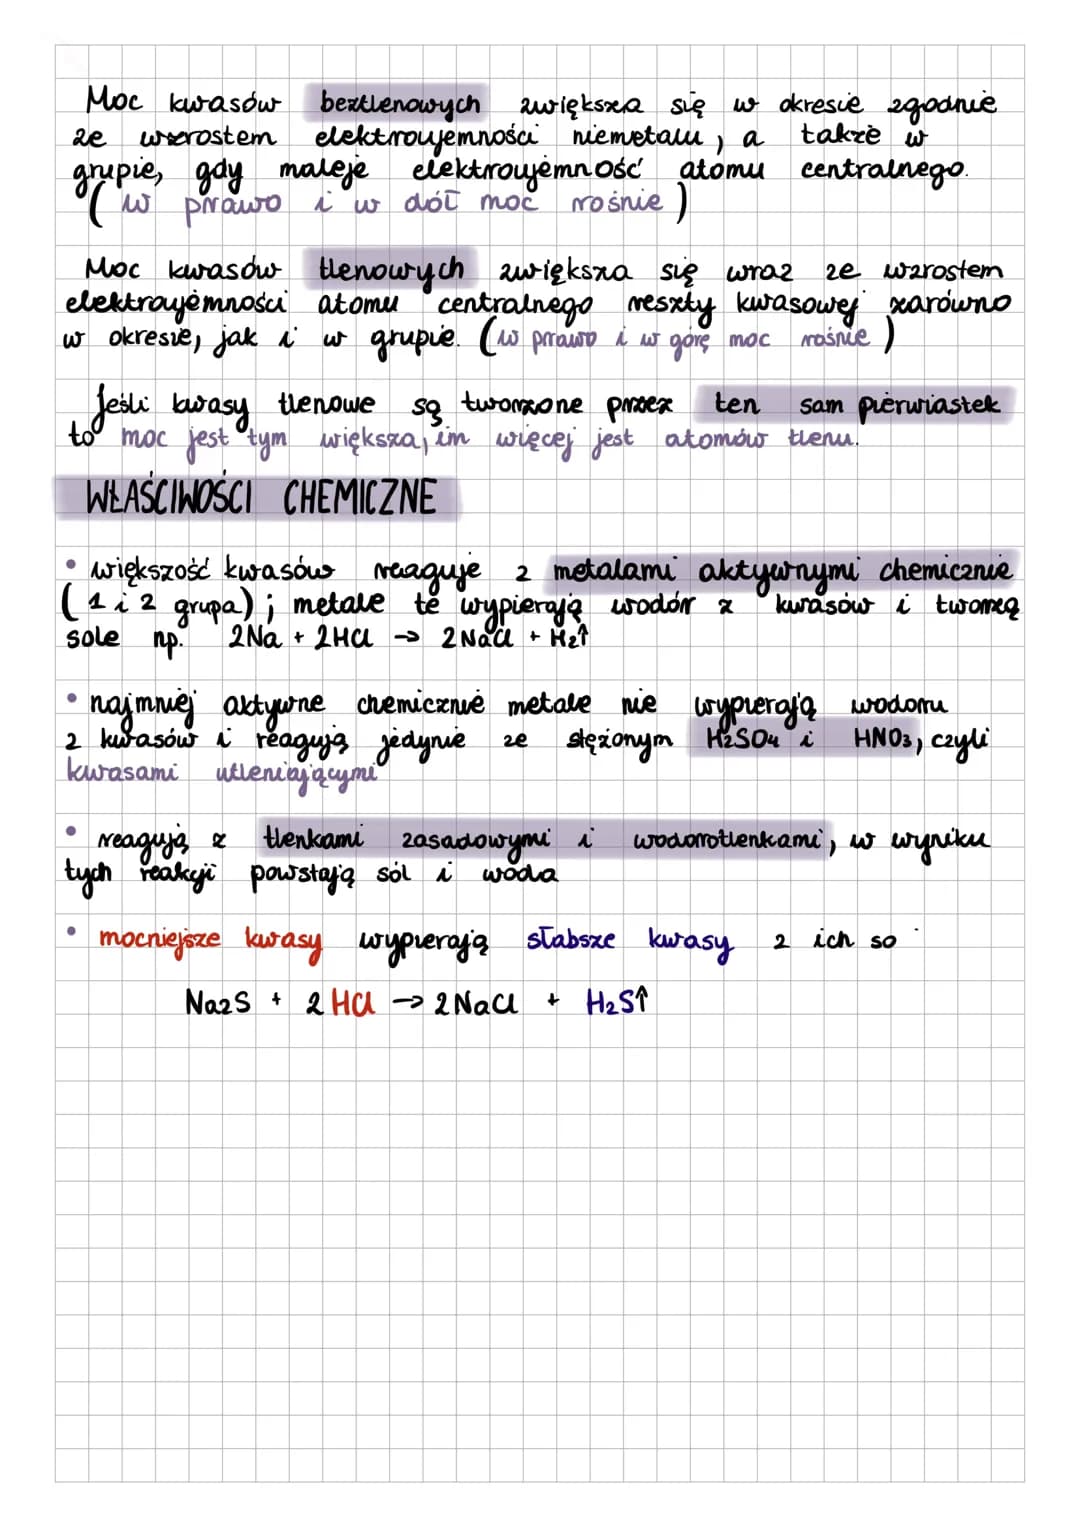 Moc kwasów beztlenowych zwiększa się w okresie zgodnie
ze wzrostem elektroujemności niemetalu, a także w
grupie, gdy maleje elektroujemność atomu centralnego.
(w prawo i w dół moc rośnie)
Moc kwasów tlenowych zwiększa się wraz ze wzrostem
elektroujemności atomu centralnego reszty kwasowej zarówno
w okresie, jak i w grupie. (w prawo i w górę moc rośnie)
Jeśli kwasy tlenowe są tworzone przez ten sam pierwiastek
to moc jest tym większa, im więcej jest atomów tlenu.
WŁAŚCIWOŚCI CHEMICZNE
• większość kwasów reaguje z metalami aktywnymi chemicznie
(1 i 2 grupa); metale te wypierają wodór z kwasów i tworzą
sole np. 2Na + 2HCl → 2NaCl + H₂↑
• najmniej aktywne chemicznie metale nie wypierają wodoru
z kwasów i reagują jedynie ze stężonym H₂SO₄ i HNO₃, czyli
kwasami utleniającymi
• reagują z tlenkami zasadowymi i wodorotlenkami, w wyniku
tych reakcji powstają sól i woda
• mocniejsze kwasy wypierają słabsze kwasy z ich so
Na₂S + 2HCl → 2NaCl + H₂S↑